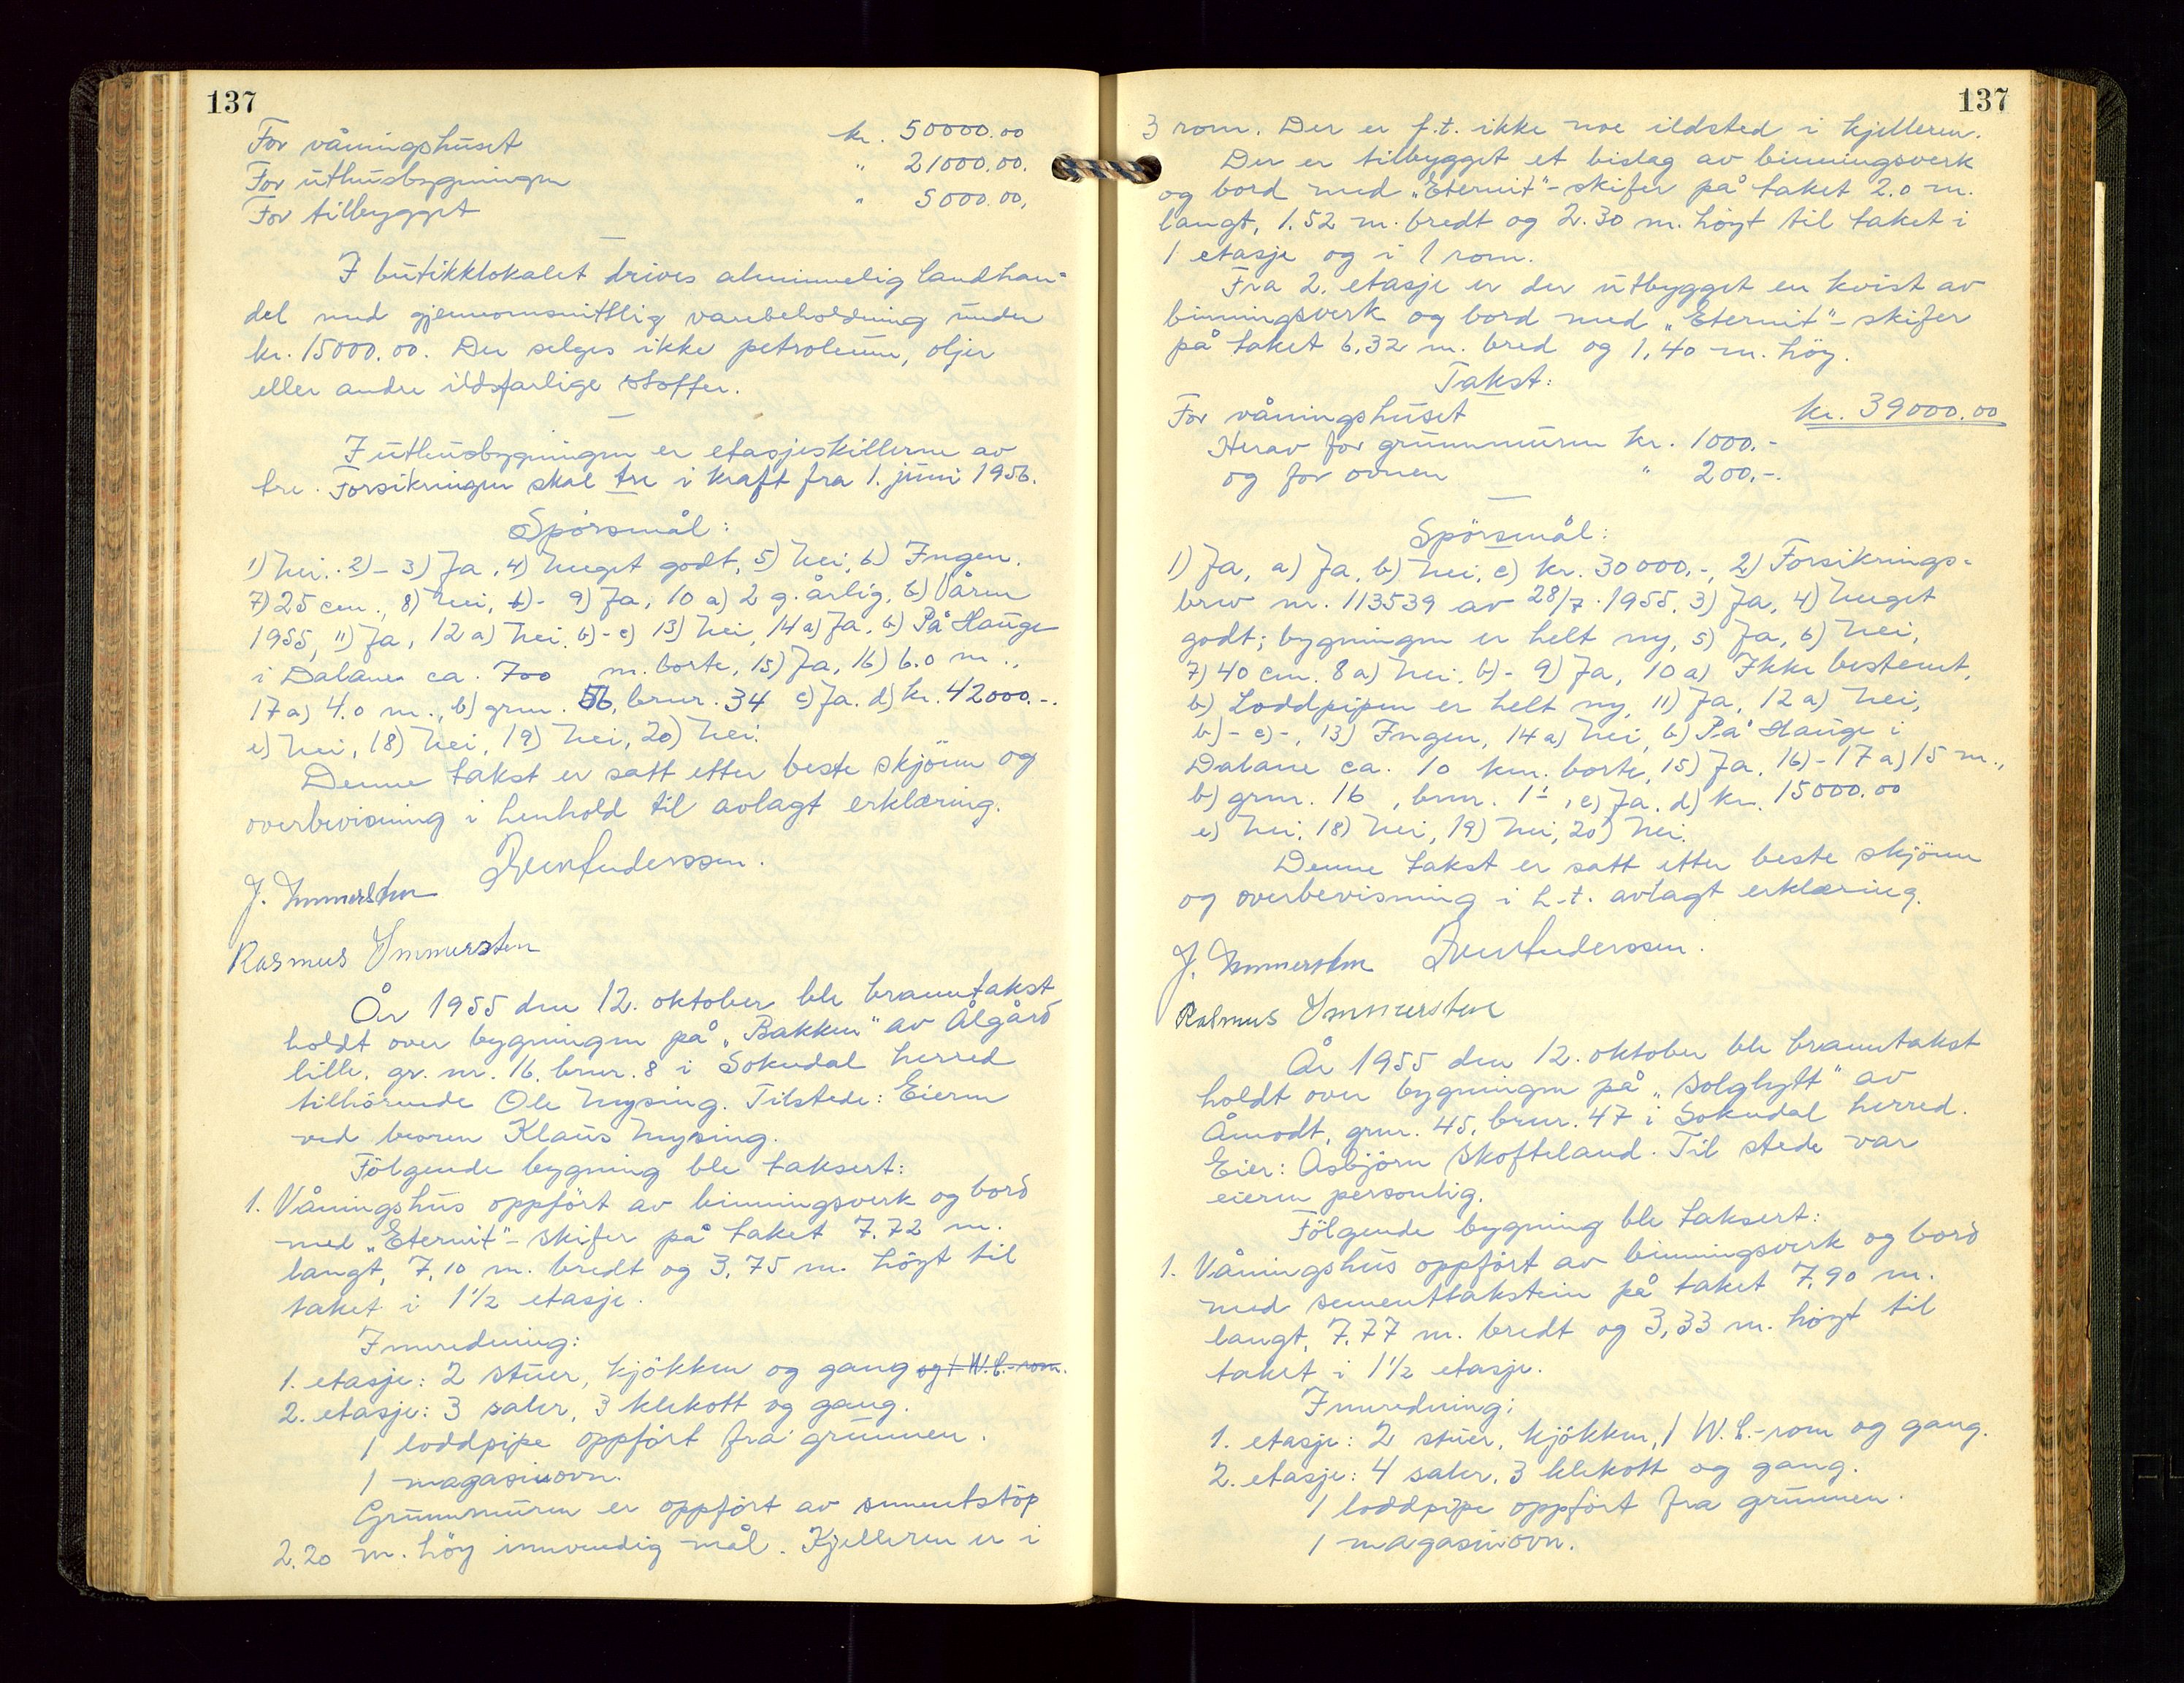 137
For våningshuset kr. 50000.00
For uthusbygningen " 21000.00.
For tilbygget " 5000.00.
I butikklokalet drives alminnelig landhan-
del med gjennomsnittlig varebeholdning under
kr. 15000.00. Der selges ikke petroleum, oljer
eller andre ildsfarlige stoffer.
I uthusbygningen er etasjeskillerne av
tre. Forsikringen skal tre i kraft fra 1. juni 1956.
Spörsmål:
1) Nei. 2)- 3) Ja, 4) Meget godt, 5) Nei, 6) Ingen.
7) 25 cm., 8) Nei, b)- 9) Ja, 10 a) 2 g. årlig, b) Våren
1955, 11) Ja, 12 a) Nei. b)-c) 13) Nei, 14 a) Ja. b) På Hauge
i Dalane ca. 700 m. borte, 15) Ja, 16) 6.0 m.,
17 a) 4.0 m., b) grnr. 56, brnr. 34 c) Ja. d) kr. 42000.-.
e) Nei, 18) Nei, 19) Nei, 20) Nei.
Denne takst er satt etter beste skjönn og
overbevisning i henhold til avlagt erklæring.
J. Immerstein
Rasmus Immerstein
År 1955 den 12. oktober ble branntakst
holdt over bygningen på "Bakken" av Ålgård
lille, gr. nr. 16, brnr. 8 i Sokndal herred
tilhörende Ole Mysing. Tilstede: Eieren
ved broren Klaus Mysing.
Fölgende bygning ble taksert:
1. Våningshus oppfört av binningsverk og bord
med "Eternit"-skifer på taket 7.72 m.
langt, 7,10 m. bredt og 3,75 m. höyt til
taket i 1½ etasje.
Innredning:
1. etasje: 2 stuer, kjökken og gang og 1 W.C.-rom.
2. etasje: 3 saler, 3 klekott og gang.
1 loddpipe oppfört fra grunnen.
1 magasinovn.
Grunnmuren er oppfört av sementstöp
2,20 m. höy innvendig mål. Kjelleren er i
137
3 rom. Der er f.t. ikke noe ildsted i kjelleren.
Der er tilbygget et bislag av binningsverk
og bord med "Eternit"-skifer på taket 2.0 m.
langt, 1,52 m. bredt og 2.30 m. höyt til taket i
1 etasje og i 1 rom.
Fra 2. etasje er der utbygget en kvist av
binningsverk og bord med "Eternit"-skifer
på taket 6,32 m. bred og 1,40 m. höy.
Takst:
For våningshuset kr. 39000.00
Herav for grunnmuren kr. 1000.-
og for ovnen " 200.-.
Spörsmål:
1) Ja, a) Ja, b) Nei, c) kr. 30000.-, 2) Forsikrings-
brev nr. 113539 av 28/7. 1955, 3) Ja, 4) Meget
godt; bygningen er helt ny, 5) Ja, 6) Nei,
7) 40 cm. 8 a) Nei. b)- 9) Ja, 10 a) Ikke bestemt,
b) Loddpipen er helt ny, 11) Ja, 12 a) Nei,
b)- c)-, 13) Ingen, 14 a) Nei, b) På Hauge i
Dalane ca. 10 km. borte, 15) Ja, 16)- 17 a) 15 m.,
b) grnr. 16, brnr. 1, c) Ja. d) kr. 15000.00
e) Nei. 18) Nei, 19) Nei, 20) Nei.
Denne takst er satt etter beste skjönn
og overbevisning i h.t. avlagt erklæring.
J. Immerstein
Rasmus Immerstein
År 1955 den 12. oktober ble branntakst
holdt over bygningen på "Solglytt" av
Åmodt, grnr. 45, brnr. 47 i Sokndal herred.
Eier: Asbjörn Skofteland. Til stede var
eieren personlig.
Fölgende bygning ble taksert:
1. Våningshus oppfört av binningsverk og bord
med sementtakstein på taket 7,90 m.
langt, 7,77 m. bredt og 3,33 m. höyt til
taket i 1½ etasje.
Innredning:
1. etasje: 2 stuer, kjökken, 1 W.C.-rom og gang.
2. etasje: 4 saler, 3 klekott og gang.
1 loddpipe oppfört fra grunnen.
1 magasinovn.